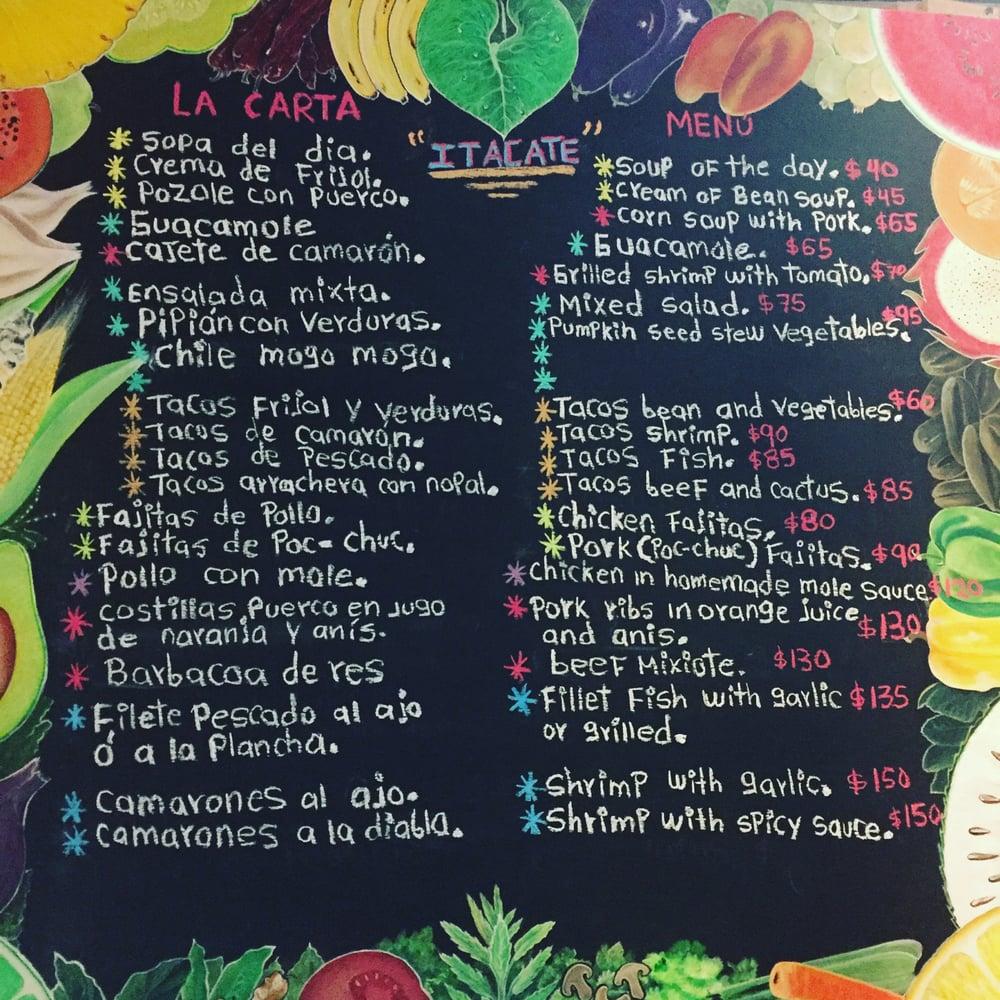 LA CARTA
* Sopa del dia.
* Crema de Frijol.
* Pozole con Puerco.
* Guacamole
* Cajete de camarón.
* Ensalada mixta.
* Pipián con Verduras.
* Chile mogo mogo.
*
* Tacos Frijol y verduras.
* Tacos de camarón.
* Tacos de Pescado.
* Tacos arrachera con nopal.
* Fajitas de Pollo.
* Fajitas de Poc-chuc.
* Pollo con mole.
* costillas Puerco en Jugo
de naranja y anís.
* Barbacoa de res
* Filete Pescado al ajo
Ó a la Plancha.
* camarones al ajo.
* camarones a la diabla.
"ITACATE"
MENÚ
* Soup of the day. $40
* Cream of Bean soup. $45
* Corn soup with Pork. $65
* Guacamole. $65
* Grilled shrimp with tomato. $70
* Mixed salad. $75
* Pumpkin seed stew vegetables. $95
*
*
* Tacos bean and vegetables. $60
* Tacos shrimp. $90
* Tacos Fish. $85
* Tacos beef and cactus. $85
* Chicken Fajitas. $80
* Pork (Poc-chuc) Fajitas. $90
* Chicken in homemade mole sauce $120
* Pork ribs in orange Juice
and anis. $130
* beef Mixiote. $130
* Fillet Fish with garlic $135
or grilled.
* Shrimp with garlic. $150
* Shrimp with spicy sauce. $150